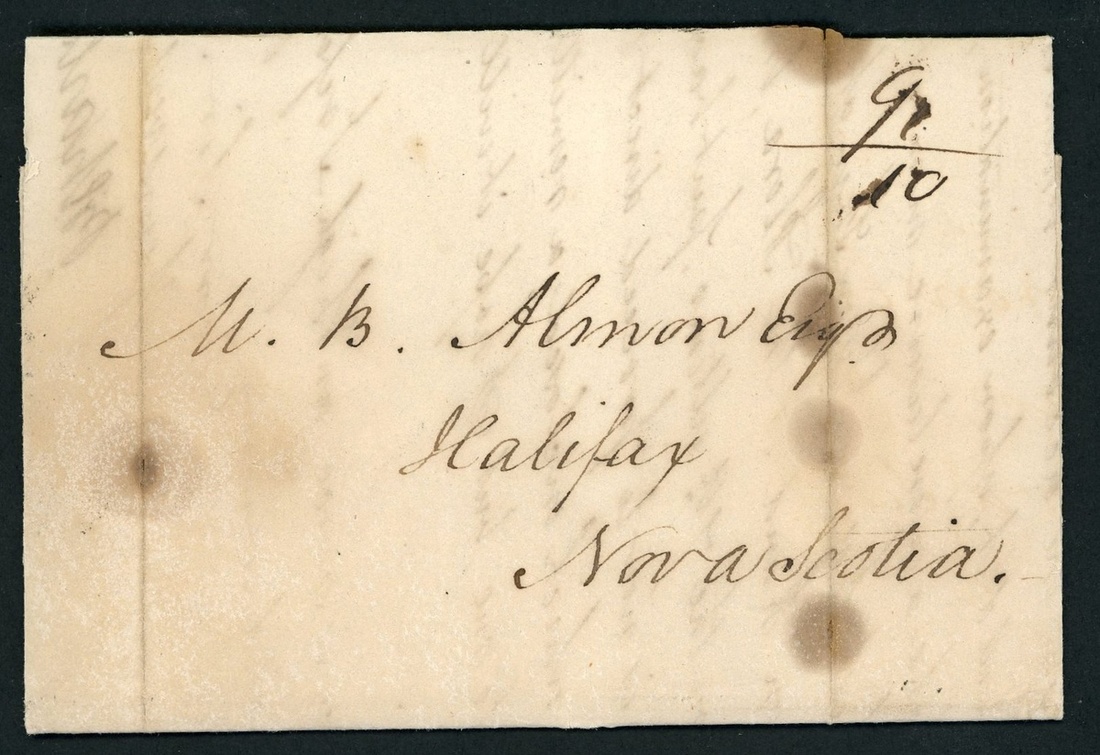 9
10
M. B. Almon Esqr
Halifax
Nova Scotia.